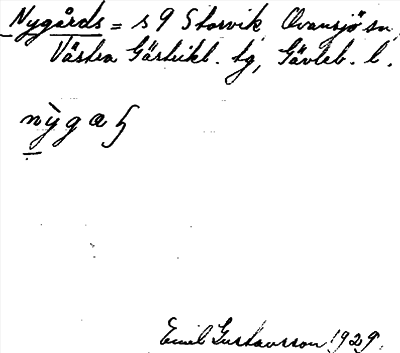 Nygårds = s 9 Storvik Ovansjö sn,
Västra Gästrikl. tg, Gävleb. l.
nỳgaʃ
Emil Gustavsson 1929.